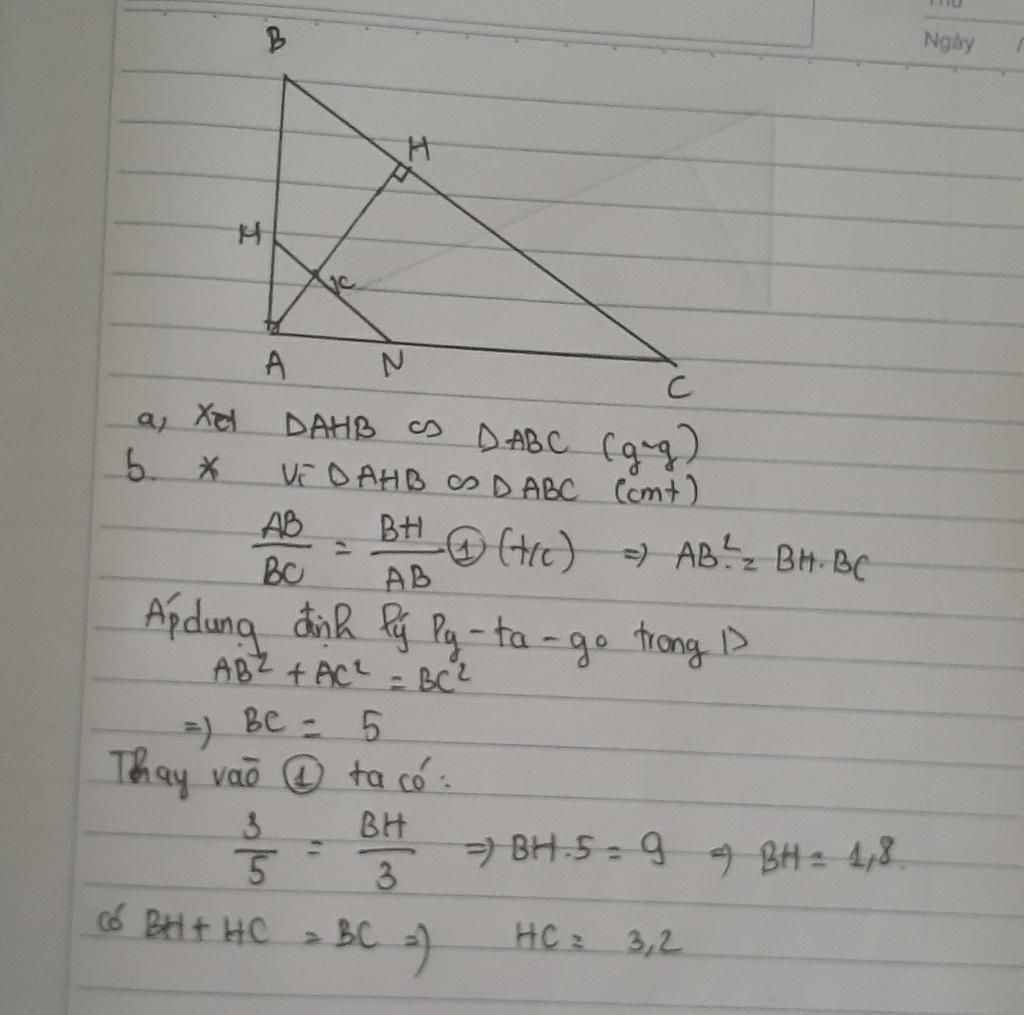 Thứ
Ngày /
B
H
M
K
A N
C
a, Xét ΔAHB ∽ ΔABC (g-g)
b. * Vì ΔAHB ∽ ΔABC (cmt)
AB/BC = BH/AB ① (t/c) => AB² = BH.BC
Áp dụng định lý Py-ta-go trong Δ
AB² + AC² = BC²
=> BC = 5
Thay vào ① ta có:
3/5 = BH/3 => BH.5 = 9 => BH = 1,8.
có BH + HC = BC => HC = 3,2